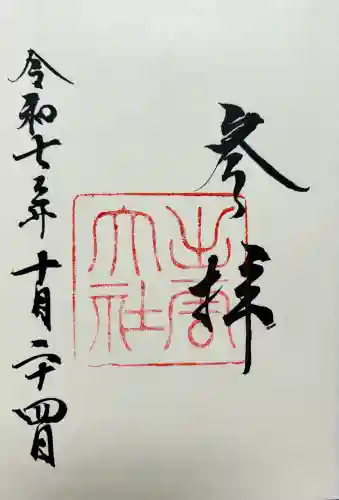 参拝
出雲
大社
令和七年十月二十四日